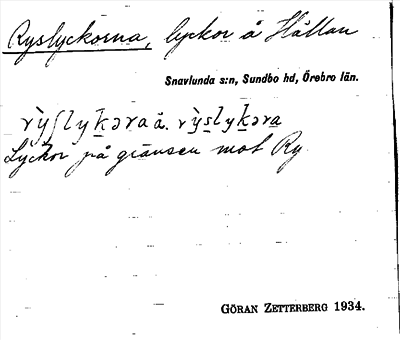 Ryslyckorna, lyckor å Hållan
Snavlunda s:n, Sundbo hd, Örebro län.
rỳʃlyḵəra å. rỳs̱lyḵəra̱
Lyckor på gränsen mot Ry.
GÖRAN ZETTERBERG 1934.